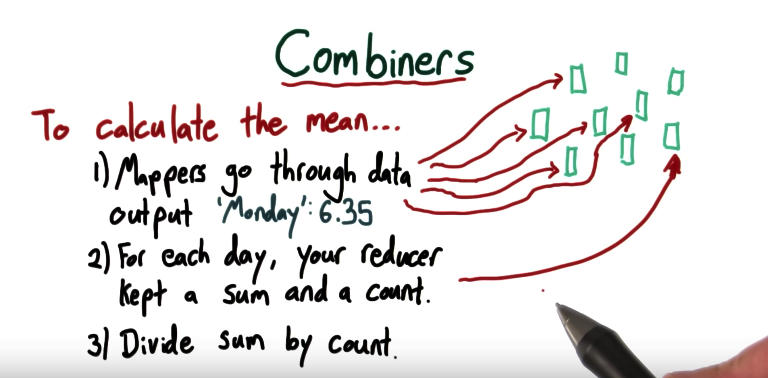 Combiners
To calculate the mean...
1) Mappers go through data
output 'Monday': 6.35
2) For each day, your reducer
kept a sum and a count.
3) Divide sum by count.